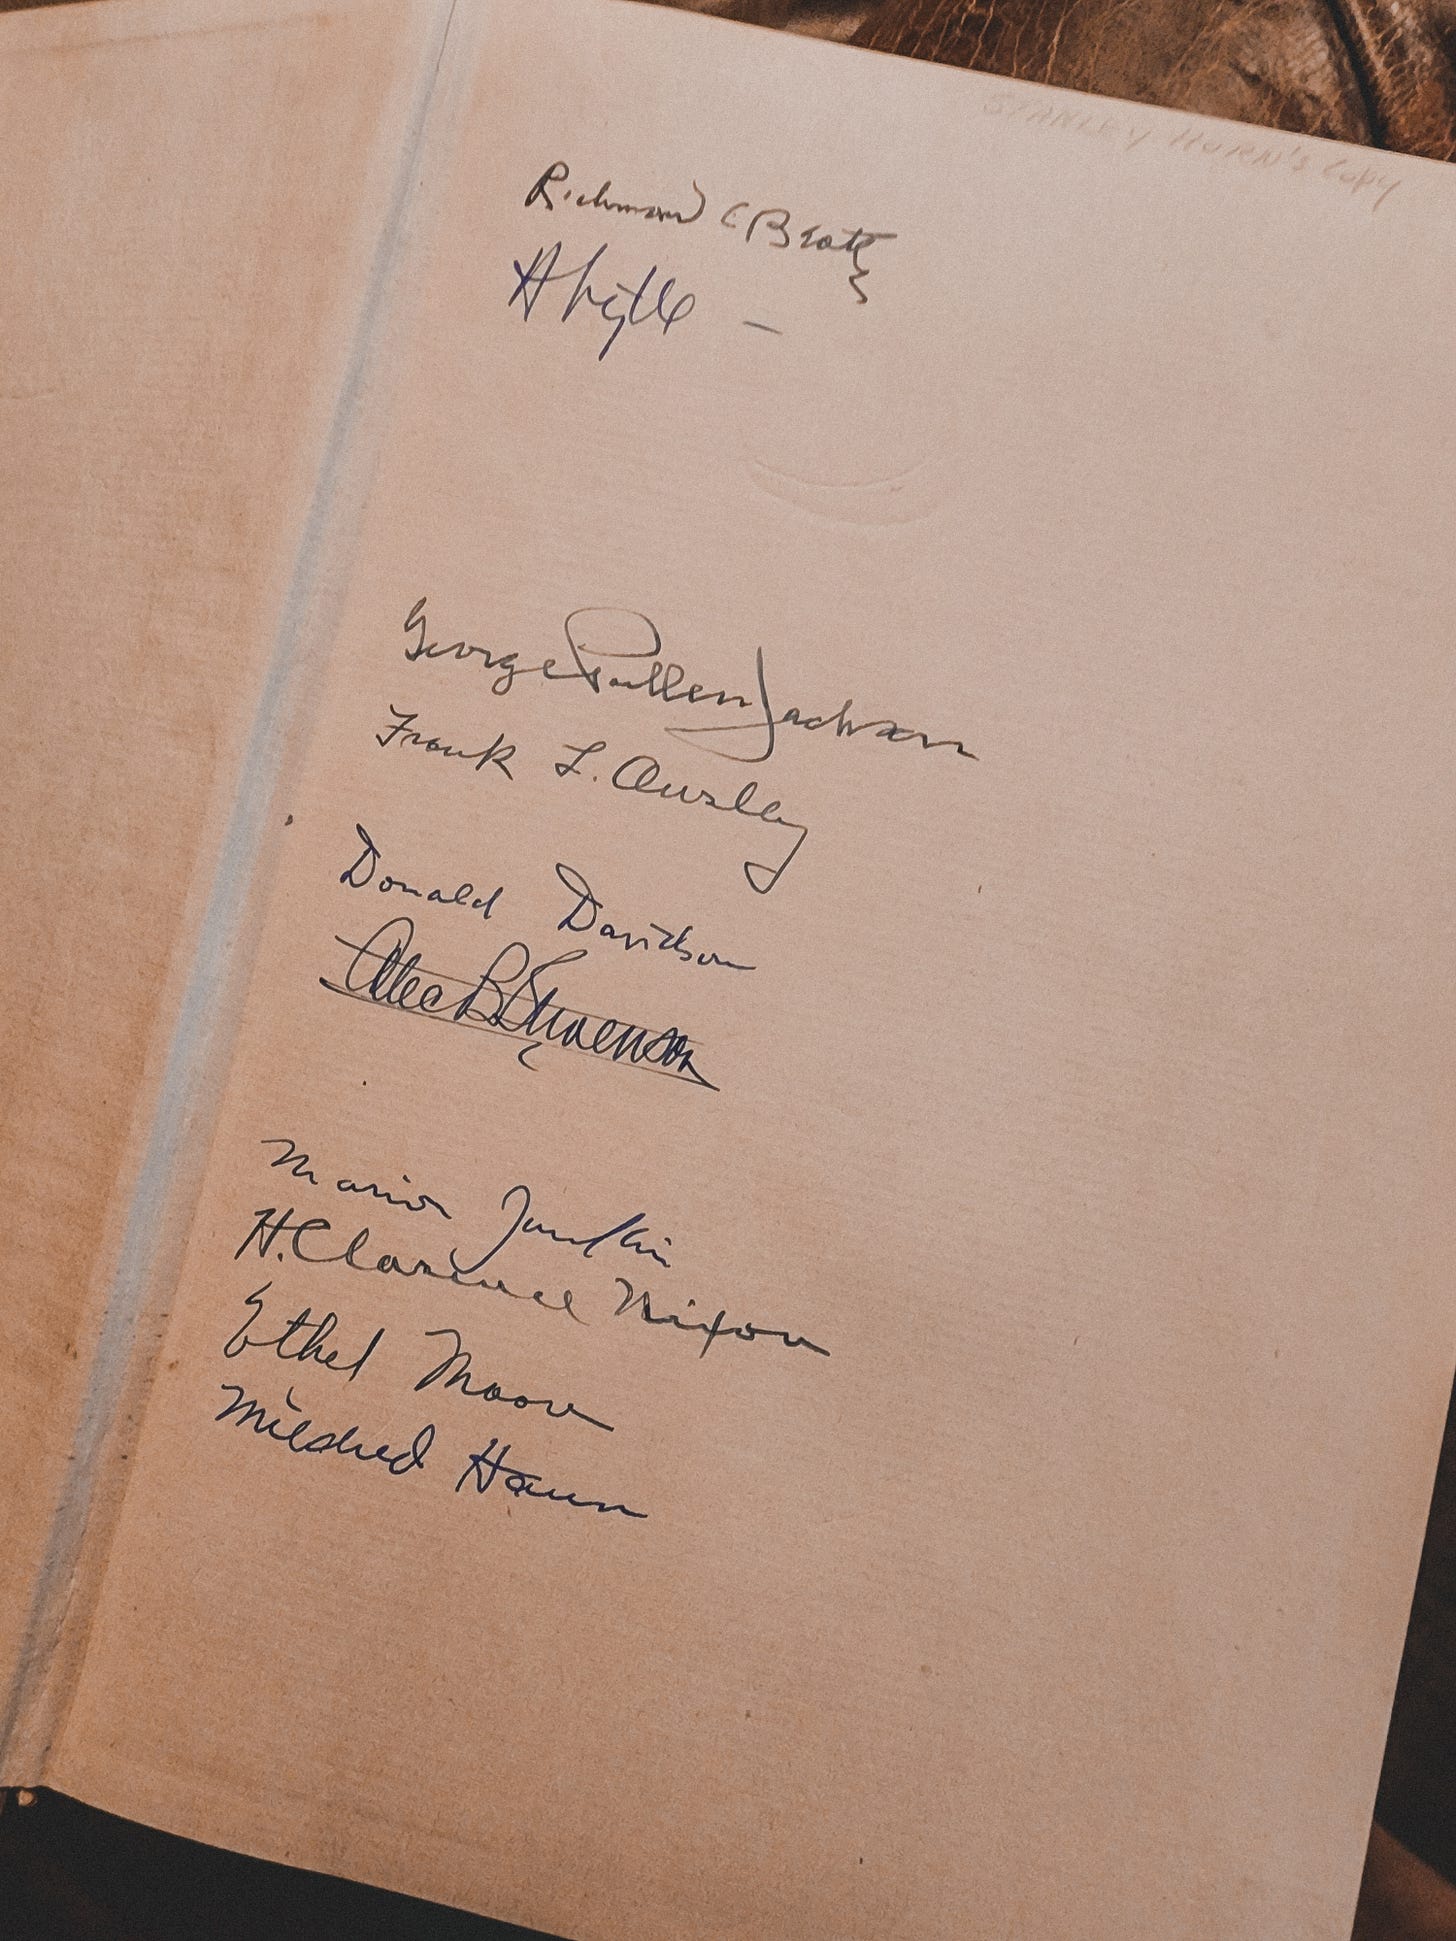 STANLEY HORN'S COPY
Richmond C Beatty
A Lytle -
George Pullen Jackson
Frank L. Owsley
Donald Davidson
Alec B Stevenson
Marion Junkin
H. Clarence Nixon
Ethel Moore
Mildred Haun